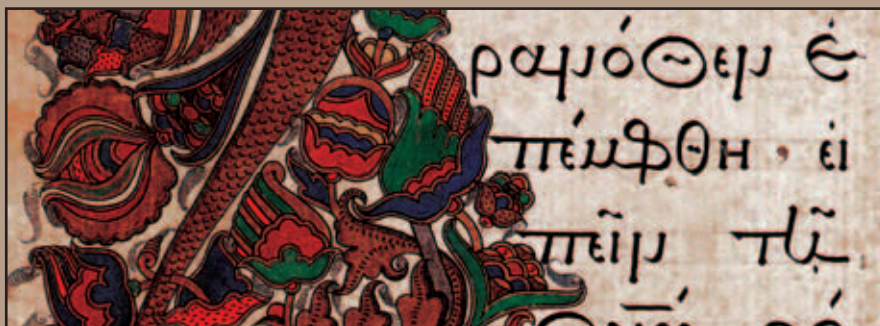 ρανόθεν ἐ
πέμφθη · εἰ
πεῖν τῇ